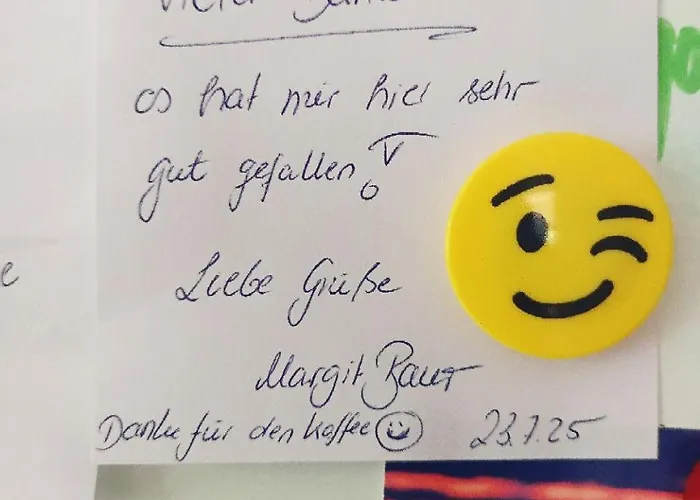 Vielen Dank
es hat mir hier sehr
gut gefallen!
Liebe Grüße
Margit Baur
Danke für den Kaffee ☺ 23.7.25
e